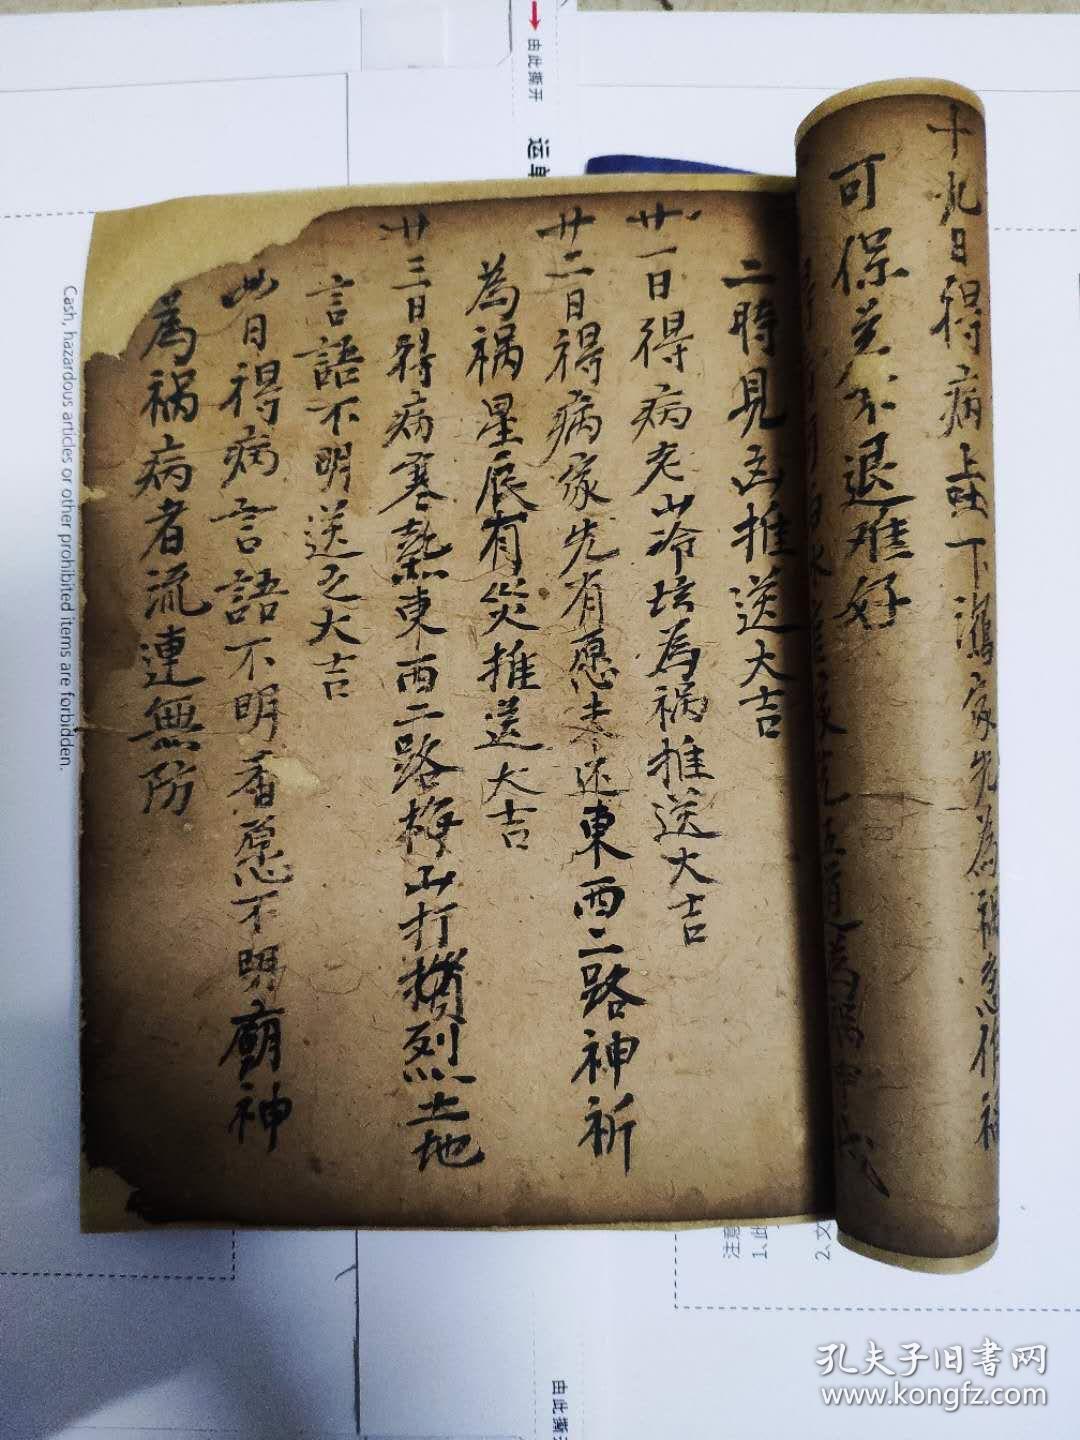 十九日得病上吐下瀉家先為禍急作福
可保若不退难好
二時見凶推送大吉
廿一日得病老山冷坛為禍推送大吉
廿二日得病家先有愿未还東西二路神祈
為禍星辰有災推送大吉
廿三日得病寒熱東西二路梅山打獵土地
言語不明送之大吉
日得病言語不明香愿不明廟神
為禍病者流連無防
Cash, hazardous articles or other prohibited items are forbidden.
由此撕开
运单
注意
1、此
2、文
由此撕
孔夫子旧書网
www.kongfz.com